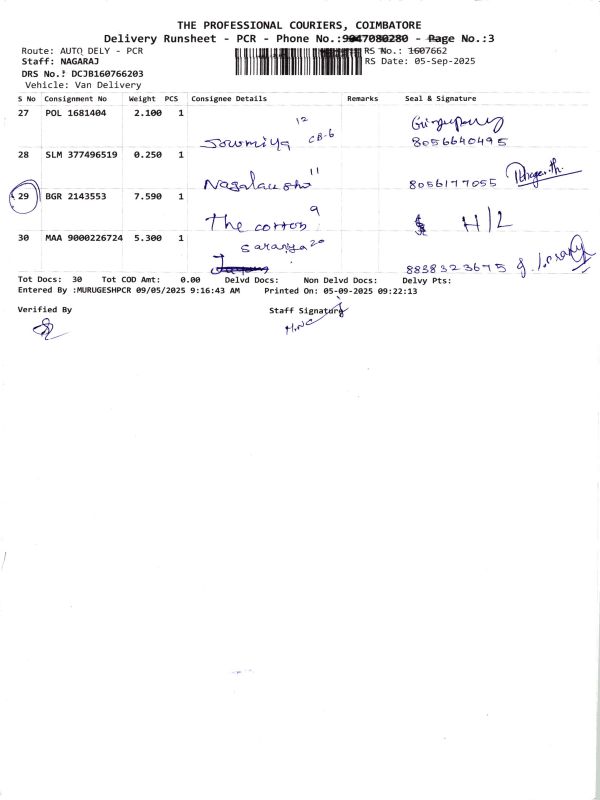 THE PROFESSIONAL COURIERS, COIMBATORE
Delivery Runsheet - PCR - Phone No.:9047080280 - Page No.:3
Route: AUTO DELY - PCR
RS No.: 1607662
Staff: NAGARAJ
RS Date: 05-Sep-2025
DRS No.: DCJB160766203
Vehicle: Van Delivery
S No Consignment No Weight PCS Consignee Details Remarks Seal & Signature
27 POL 1681404 2.100 1
12
Sowmiya CB-6
8056640495
28 SLM 377496519 0.250 1
11
8056177055
29 BGR 2143553 7.590 1
9
The cotton
H/L
30 MAA 9000226724 5.300 1
Saranya 20
8838323675
Tot Docs: 30 Tot COD Amt: 0.00 Delvd Docs: Non Delvd Docs: Delvy Pts:
Entered By :MURUGESHPCR 09/05/2025 9:16:43 AM Printed On: 05-09-2025 09:22:13
Verified By Staff Signature